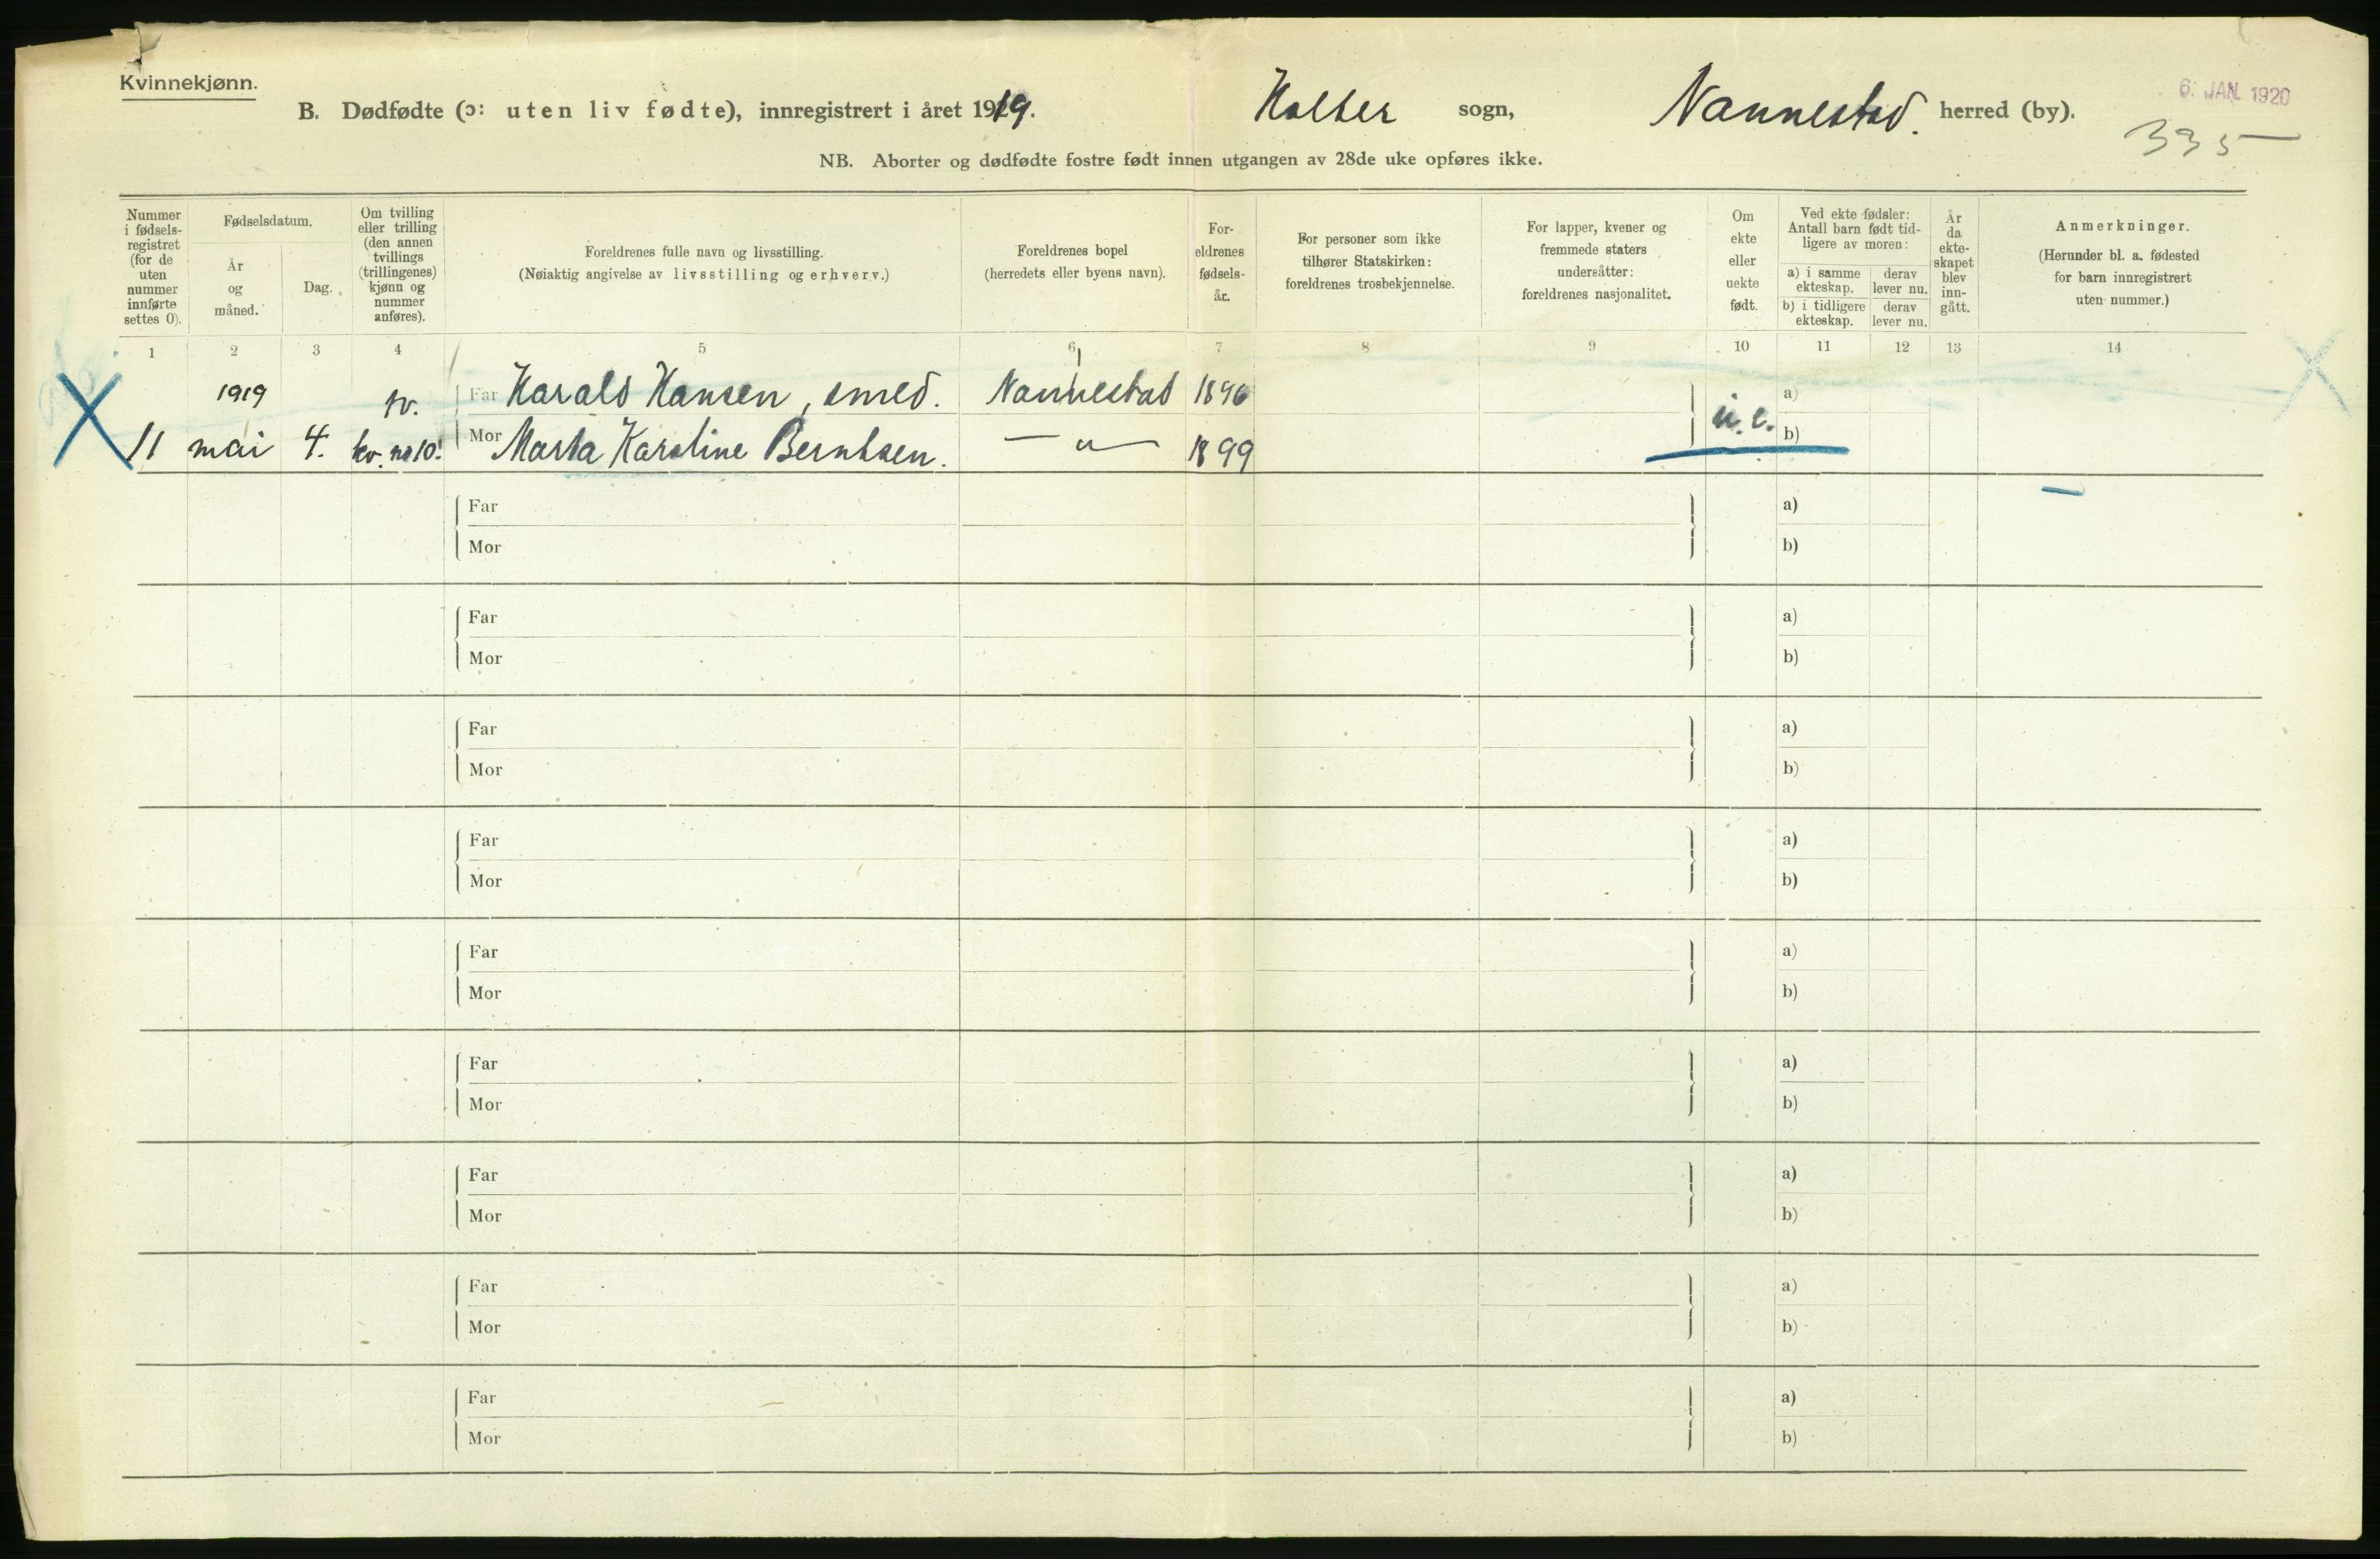 Kvinnekjønn.
B. Dødfødte (ɔ: uten liv fødte), innregistrert i året 1919. Holter sogn, Nannestad. herred (by).
6. JAN. 1920
335
NB. Aborter og dødfødte fostre født innen utgangen av 28de uke opføres ikke.
Nummer i fødsels-registret (for de uten nummer innførte settes 0).
Fødselsdatum.
År og måned.
Dag.
Om tvilling eller trilling (den annen tvillings (trillingenes) kjønn og nummer anføres).
Foreldrenes fulle navn og livsstilling.
(Nøiaktig angivelse av livsstilling og erhverv.)
Foreldrenes bopel
(herredets eller byens navn).
For-eldrenes fødsels-år.
For personer som ikke tilhører Statskirken: foreldrenes trosbekjennelse.
For lapper, kvener og fremmede staters undersåtter: foreldrenes nasjonalitet.
Om ekte eller uekte født.
Ved ekte fødsler: Antall barn født tid-ligere av moren:
a) i samme ekteskap.
derav lever nu.
b) i tidligere ekteskap.
derav lever nu.
År da ekte-skapet blev inn-gått.
Anmerkninger.
(Herunder bl. a. fødested for barn innregistrert uten nummer.)
1 2 3 4 5 6 7 8 9 10 11 12 13 14
1919 tv. Far Harald Hansen, smed. Nannestad 1896 a)
11 mai 4. kv. no 10. Mor Marta Karoline Berntsen. — " — 1899 u. e. b)
Far a)
Mor b)
Far a)
Mor b)
Far a)
Mor b)
Far a)
Mor b)
Far a)
Mor b)
Far a)
Mor b)
Far a)
Mor b)
Far a)
Mor b)
Far a)
Mor b)